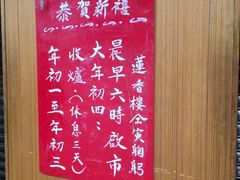 恭賀新禧
年初一至年初三
收爐.(休息三天)
大年初四:
晨早六時啟市
蓮香樓仝寅鞠躬